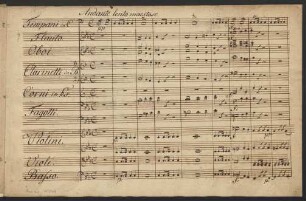 Andante lento maestoso
Timpani in C
Flauto
Oboi
Clarinetti in
Corni in
Fagotti
Violini
Viole
Basso